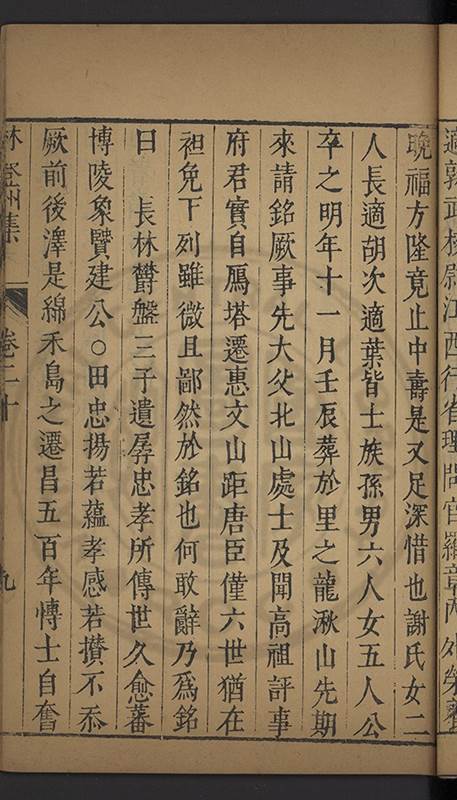 適郭武校尉江西行省理問官羅章內外榮養
晩福方隆竟止中壽是又足深惜也謝氏女二
人長適胡次適葉皆士族孫男六人女五人公
卒之明年十一月壬辰葬於里之龍湫山先期
來請銘厥事先大父北山處士及開高祖評事
府君實自鴈塔遷惠文山距唐臣僅六世猶在
袒免下列雖微且鄙然於銘也何敢辭乃為銘
曰　長林欝盤三子遺孱忠孝所傳世久愈蕃
博陵象賢建公○田忠揚若蘊孝感若攅不忝
厥前後澤是綿禾島之遷昌五百年愽士自奮
林登州集　卷二十　九